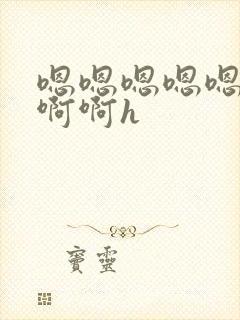 嗯嗯嗯嗯嗯
啊啊h
窦靈